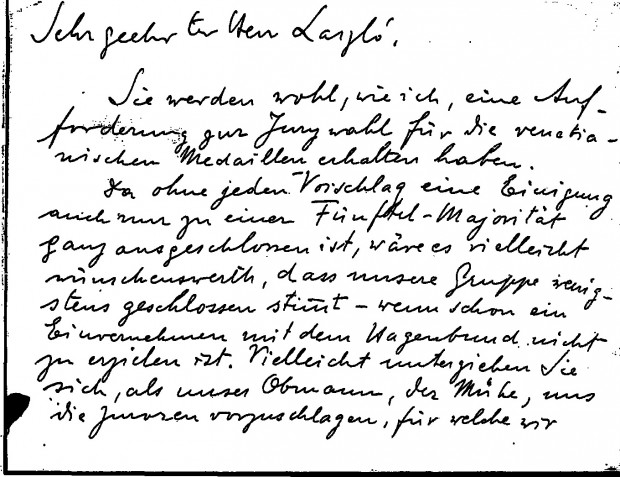 Sehr geehrter Herr Laszló,
Sie werden wohl, wie ich, eine Auf-
forderung zur Jurywahl für die venetia-
nischen Medaillen erhalten haben.
Da ohne jeden Vorschlag eine Einigung
auch nur zu einer Fünftel-Majorität
ganz ausgeschlossen ist, wäre es vielleicht
wünschenswerth, dass unsere Gruppe wenig-
stens geschlossen stimt - wenn schon ein
Einvernehmen mit dem Hagenbund nicht
zu erzielen ist. Vielleicht unterziehen Sie
sich, als unser Obmann, der Mühe, uns
die Juroren vorzuschlagen, für welche wir